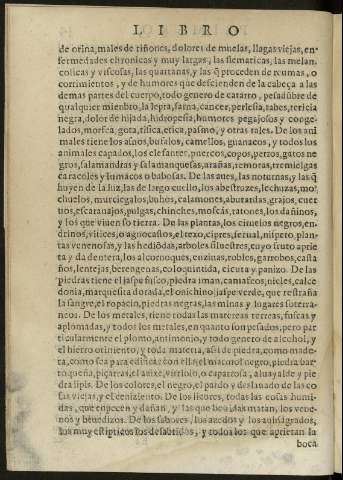 LIBRO
de orina, males de riñones, dolores de muelas, llagas viejas, en-
fermedades chronicas y muy largas, las flematicas, las melan-
colicas y viscosas, las quartanas, y las q̃ proceden de reumas, o
corrimientos, y de humores que descienden de la cabeça a las
demas partes del cuerpo, todo genero de catarro, pesadũbre de
qualquier mienbro, la lepra, sarna, cancer, perlesia, tabes, tericia
negra, dolor de hijada, hidropesia, humores pegajosos y conge-
lados, morfea, gota, tisica, etica, pasmo, y otras tales. De los ani
males tiene los asnos, bufalos, camellos, guanacos, y todos los
animales capados, los elefantes, puercos, topos, perros, gatos ne
gros, salamandras y salamanquesas, arañas, remoras, tremielgas
caracoles y lumacos o babosas. De las aues, las noturnas, y las q̃
huyen de la luz, las de largo cuello, los abestruzes, lechuzas, mo
chuelos, murciegalos, buhos, calamones, abutardas, grajos, cuer
uos, escarauajos, pulgas, chinches, moscas, ratones, los dañinos,
y los que viuen so tierra. De las plantas, los ciruelos negros, en-
drinos, vitices, o agnocastos, el texo, cipres, serual, nispero, plan-
tas venenosas, y las hediõdas, arboles siluestres, cuyo fruto aprie
ta y da dentera, los alcornoques, enzinas, robles, garrobos, casta
ños, lentejas, berengenas, coloquintida, cicuta y panizo. De las
piedras tiene el jaspe fusco, piedra iman, camafeos, nieles, calce
donia, marquesita dorada, el onichino, jaspe verde, que restraña
la sangre, el topacio, piedras negras, las minas y lugares soterra-
neos. De los metales, tiene todas las materias terreas, fuscas y
aplomadas, y todos los metales, en quanto son pesados, pero par
ticularmente el plomo, antimonio, y todo genero de alcohol, y
el hierro oriniento, y toda materia, assi de piedra, como made-
ra, como sea para edificar con ella, el marmol negro, piedra bar
roqueña, piçarras, el azixe, vitriolo, o caparrosa, aluayalde y pie
dra lipis. De los colores, el negro, el pardo y deslauado de las co
sas viejas, y el ceniziento. De los licores, todas las cosas humi
das, que enpecen y dañan, y las que beuidas matan, los vene-
nos y bebedizos. De los sabores, los azedos y los auinagrados,
los muy estipticos, los desabridos, y todos los que aprietan la
boca